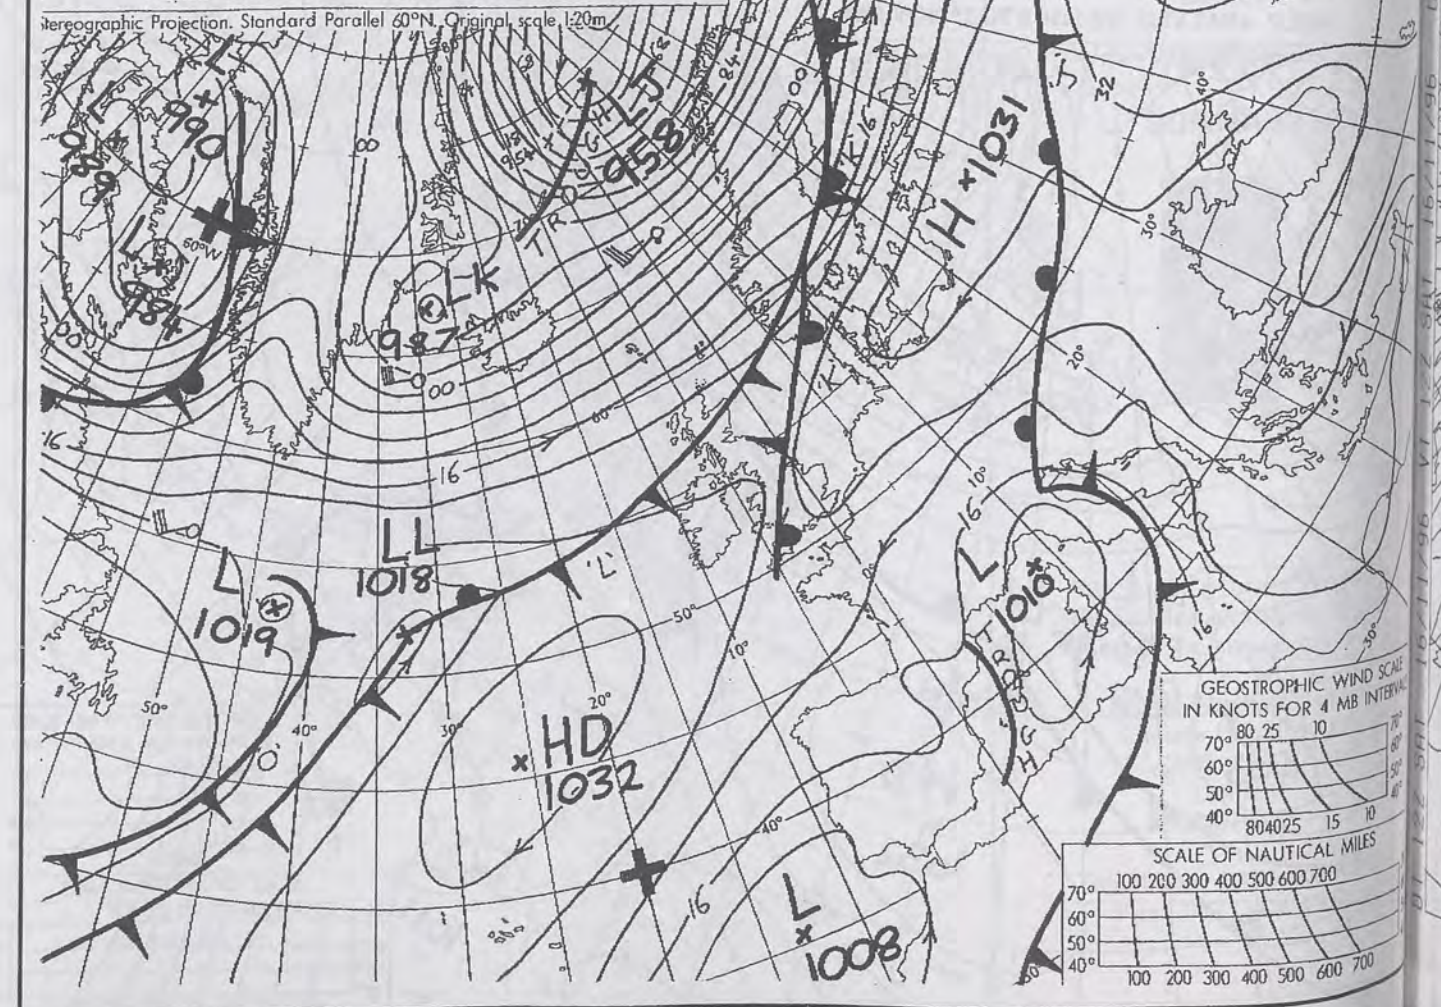 Stereographic Projection. Standard Parallel 60°N. Original scale 1:20m
L
L
990
989
L
984
60°W
00
00
L-J
958
954
TROUGH
84
00
K
16
H
1031
J
32
40°
30°
20°
10°
L-K
987
00
00
60°
16
16
LL
1018
L
1019
'L'
50°
10°
16
L
1010
TROUGH
16
30°
50°
40°
30°
20°
'O'
HD
1032
40°
16
L
1008
GEOSTROPHIC WIND SCALE
IN KNOTS FOR 4 MB INTERVAL
80 25 10
70° 70°
60° 60°
50° 50°
40° 40°
80 40 25 15 10
SCALE OF NAUTICAL MILES
100 200 300 400 500 600 700
70°
60°
50°
40°
100 200 300 400 500 600 700